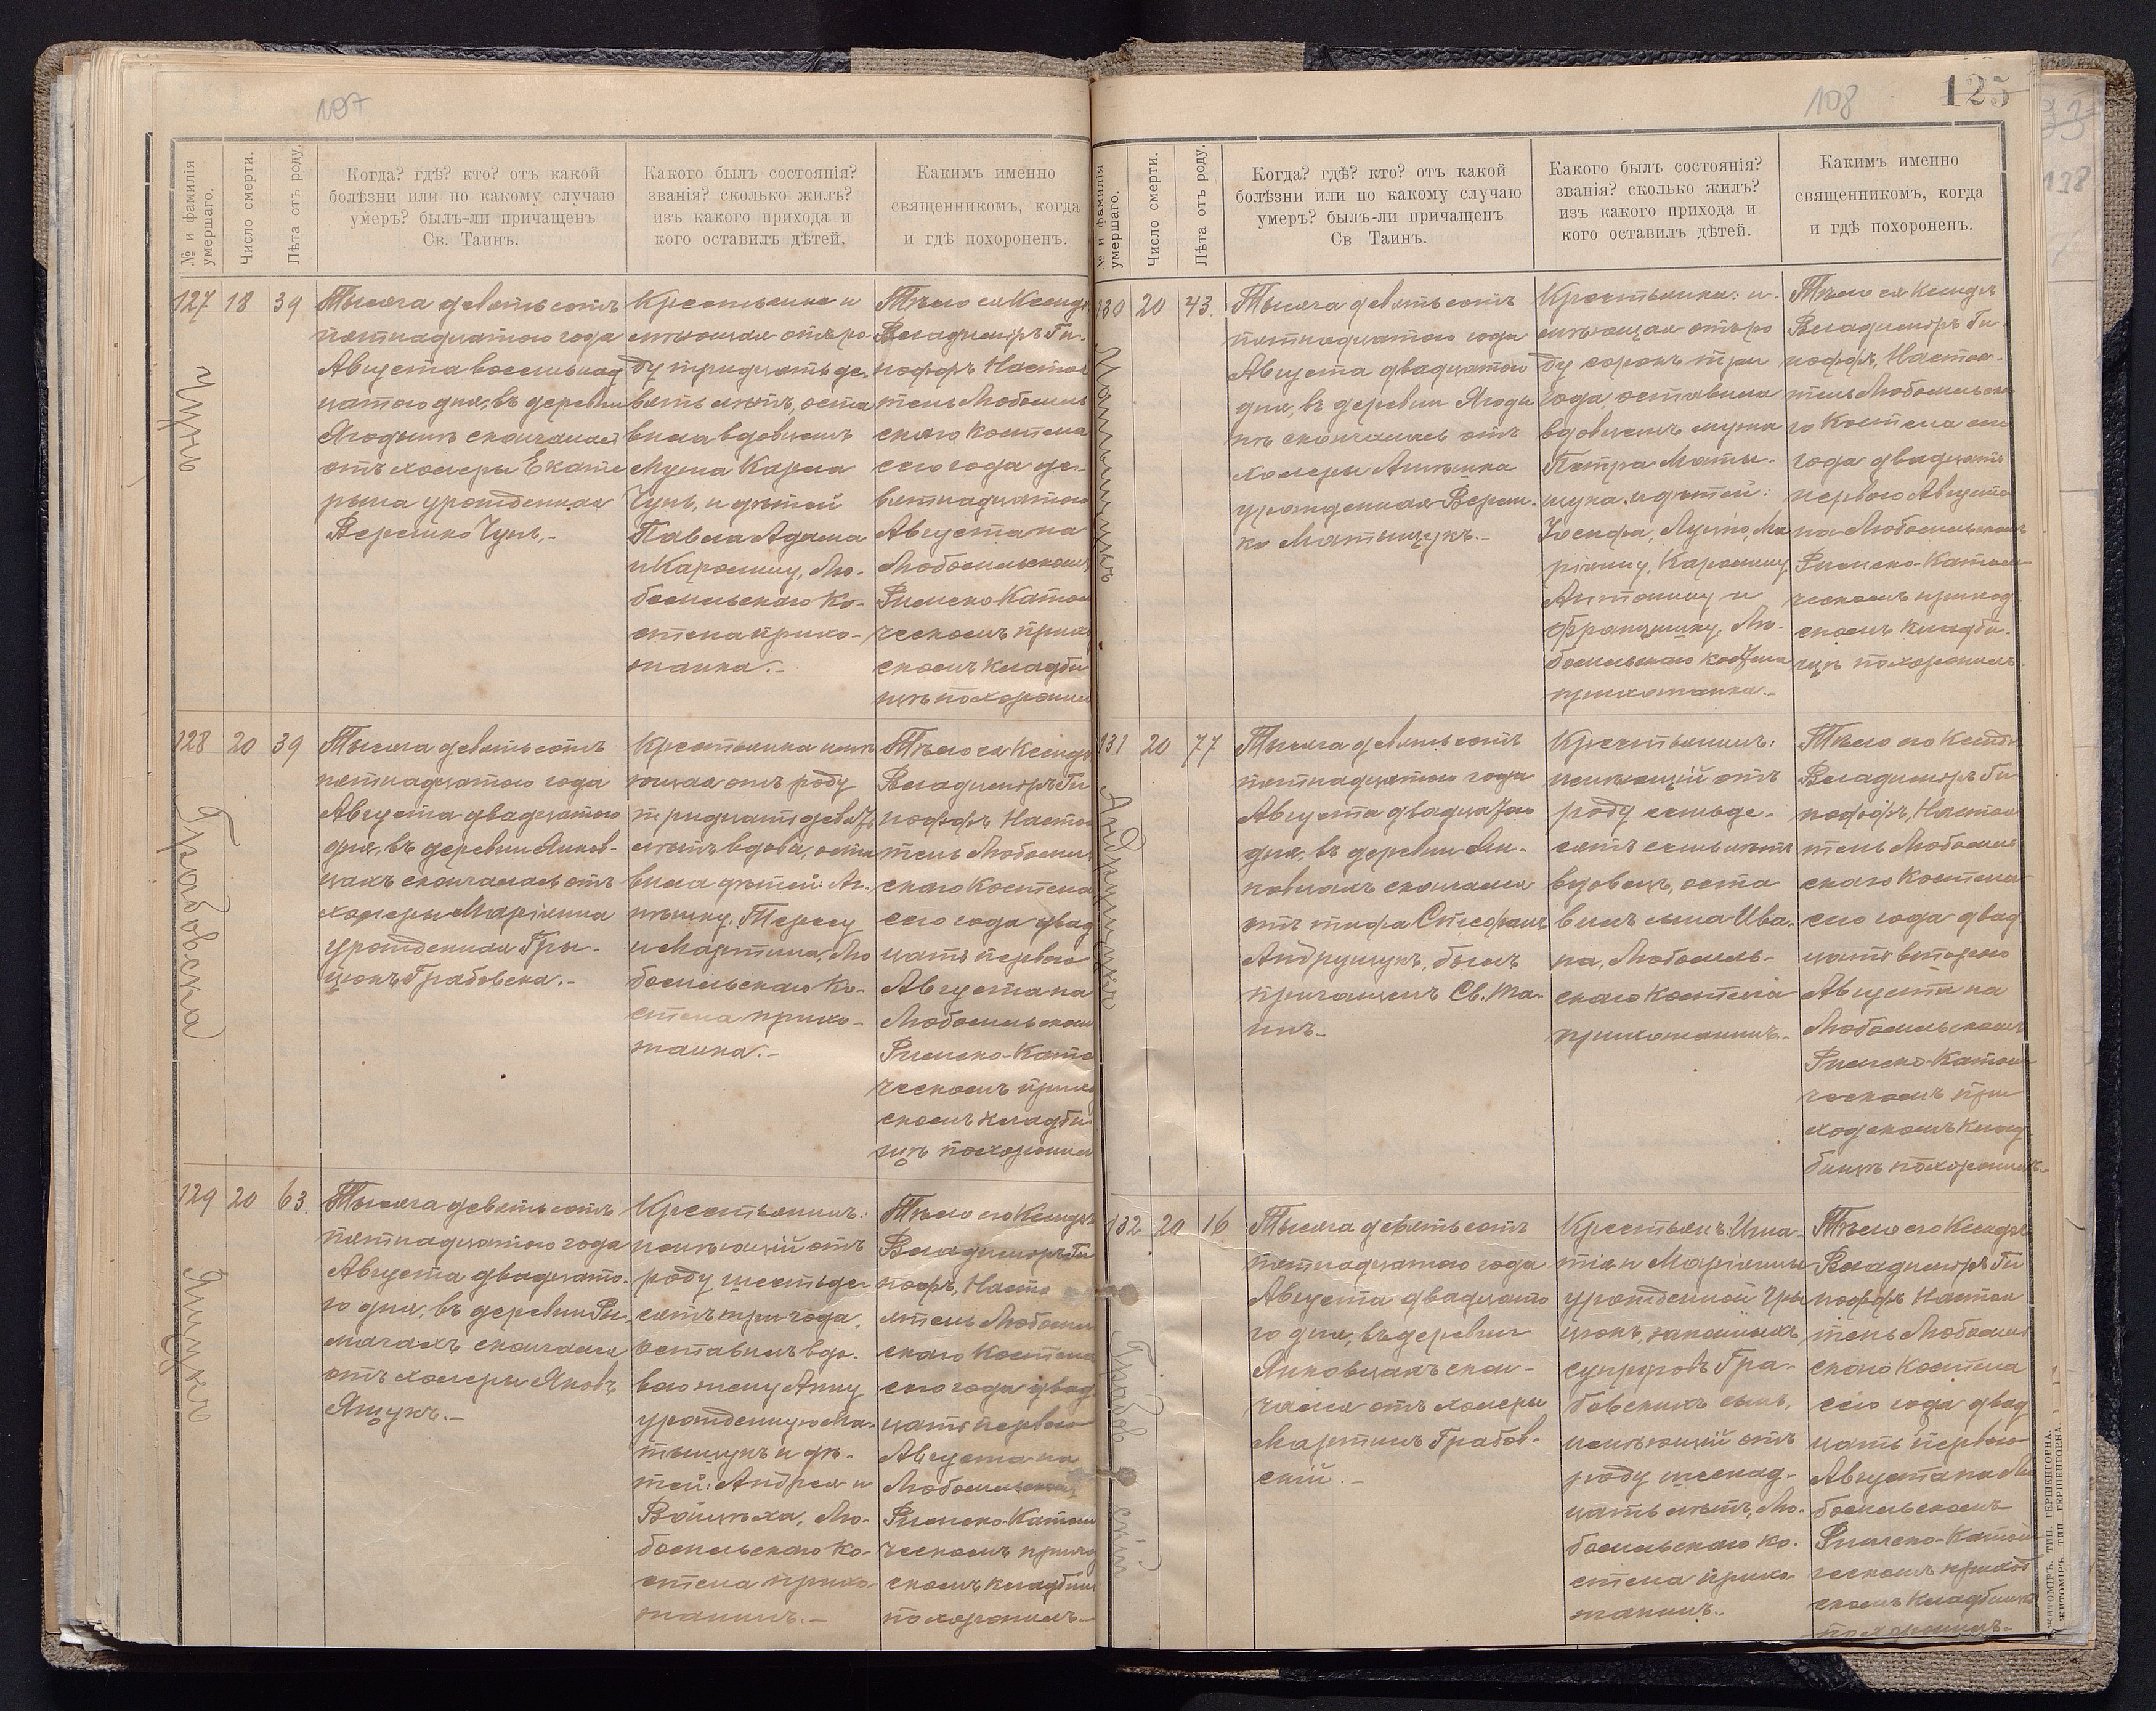 107
№ и фамилія умершаго.
Число смерти.
Лѣта отъ роду.
Когда? гдѣ? кто? отъ какой
болѣзни или по какому случаю
умеръ? былъ-ли причащенъ
Св. Таинъ.
Какого былъ состоянія?
званія? сколько жилъ?
изъ какого прихода и
кого оставилъ дѣтей.
Какимъ именно
священникомъ, когда
и гдѣ похороненъ.
127
Чуль
18
39
Тысяча девятьсотъ
пятнадцатого года
Августа восемьнад
цатого дня, въ деревни
Ягодынѣ скончалась
отъ холеры Екате
рына урожденная
Верешко Чуль,-
Крестьянка и
мѣющая отъ ро-
ду тридцать де-
вять лѣтъ, оста
вила вдовцемъ
Мужа Кароля
Чуль, и дѣтей
Павла Адама
и Каролину, Лю-
бомльскаго Ко-
стела прихо-
жанка.-
Тѣло ея Ксендз
Владимиръ Ги-
пофъ Настоя
тель Любомль
скаго Костела
сего года де-
вятнадцатого
Августа на
Любомльскомъ
Римско Катол
ческомъ прихо
скомъ кладби
щѣ похоронил
128
Грабовска
20
39
Тысяча девятьсотъ
пятнадцатого года
Августа двадцатого
дня, въ деревни Янков-
цахъ скончалась отъ
холеры Маріянна
урожденная Гры-
цюкъ Грабовска.-
Крестьянка имѣ
ющая отъ роду
тридцать девять
лѣтъ вдова, оста
вила дѣтей: Аг-
нѣшку, Тересу
и Мартина, Лю
бомльскаго Ко-
стела прихо-
жанка.-
Тѣло ея Ксендз
Владимиръ Ги
поффъ Настоя
тель Любомль
скаго Костела
сего года двад
цать первого
Августа на
Любомльском
Римско-Като
ческомъ прихо
скомъ кладби
щѣ похоронил
129
Ящукъ
20
63.
Тысяча девятьсотъ
пятнадцатого года
Августа двадцато-
го дня, въ деревни Ри-
мачахъ скончался
отъ холеры Яковъ
Ящукъ.-
Крестьянинъ:
имѣющій отъ
роду шестьде-
сятъ три года,
оставилъ вдо-
вою жену Анну
урожденную Ма-
тыщукъ и дѣ-
тей: Андрея и
Войцѣха, Лю-
бомльскаго Ко-
стела прихо-
жанинъ.-
Тѣло его Ксендзъ
Владимиръ Ги
пофъ, Насто
ятель Любомль
скаго Костела
сего года двад
цать первого
Августа на
Любомльском
Римско-Катол
ческомъ прихо
скомъ кладбищ
похоронилъ-
108
125
№ и фамилія умершаго.
Число смерти.
Лѣта отъ роду.
Когда? гдѣ? кто? отъ какой
болѣзни или по какому случаю
умеръ? былъ-ли причащенъ
Св Таинъ.
Какого былъ состоянія?
званія? сколько жилъ?
изъ какого прихода и
кого оставилъ дѣтей.
Какимъ именно
священникомъ, когда
и гдѣ похороненъ.
130
Матыщукъ
20
43.
Тысяча девятьсотъ
пятнадцатого года
Августа двадцатого
дня, въ деревни Ягоды
нѣ скончалась отъ
холеры Агнѣшка
урожденная Вереш-
ко Матыщукъ.-
Крестьянка: и-
мѣющая отъ ро
ду сорокъ три
года, оставила
вдовцемъ мужа
Петра Маты-
щука, и дѣтей:
Іосифа, Луцію, Ма
ріянну, Каролину
Антонину и
Францишку, Лю-
бомльскаго костела
прихожанка.-
Тѣло ея Ксендз
Владимиръ Ги-
поффъ, Настоя-
тель Любомльска
го Костела сего
года двадцать
первого Августа
на Любомльском
Римско-Катол
ческомъ приход
скомъ кладби-
щѣ похоронилъ.
131
Андрущукъ
20
77
Тысяча девятьсотъ
пятнадцатого года
Августа двадцатого
дня, въ деревни Ян-
ковцахъ скончался
отъ тифа Стефанъ
Андрущукъ, былъ
причащенъ Св. Та-
инъ.-
Крестьянинъ:
имѣющій отъ
роду семьде-
сятъ семь лѣтъ
вдовецъ, оста
вилъ сына Ива-
на, Любомль-
скаго Костела
прихожанинъ.-
Тѣло его Ксендз
Владимиръ Ги
поффъ, Настоя
тель Любомль
скаго Костела
сего года двад
цать второго
Августа на
Любомльскомъ
Римско-Катол
ческомъ при
ходскомъ клад
бищѣ похоронилъ.-
132
Грабовскій
20
16
Тысяча девятьсотъ
пятнадцатого года
Августа двадцато
го дня, въ деревни
Янковцахъ скон-
чался отъ холеры
Мартинъ Грабов-
скій.-
Крестьянъ: Игна-
тія и Маріянны
урожденной Гры
цюкъ, законныхъ
супруговъ Гра-
бовскихъ сынъ,
имѣющій отъ
роду шеснад-
цать лѣтъ, Лю-
бомльскаго Ко-
стела прихо-
жанинъ.-
Тѣло его Ксендз
Владимиръ Ги
поффъ Настоя
тель Любомль
скаго Костела
сего года двад
цать первого
Августа на Лю
бомльскомъ
Римско-Катол
ческомъ приход
скомъ Кладбищѣ
похоронилъ.-
ЖИТОМІРЪ. ТИП. ГЕРШЕНГОРНА.
ЖИТОМІРЪ. ТИП. ГЕРШЕНГОРНА.
138